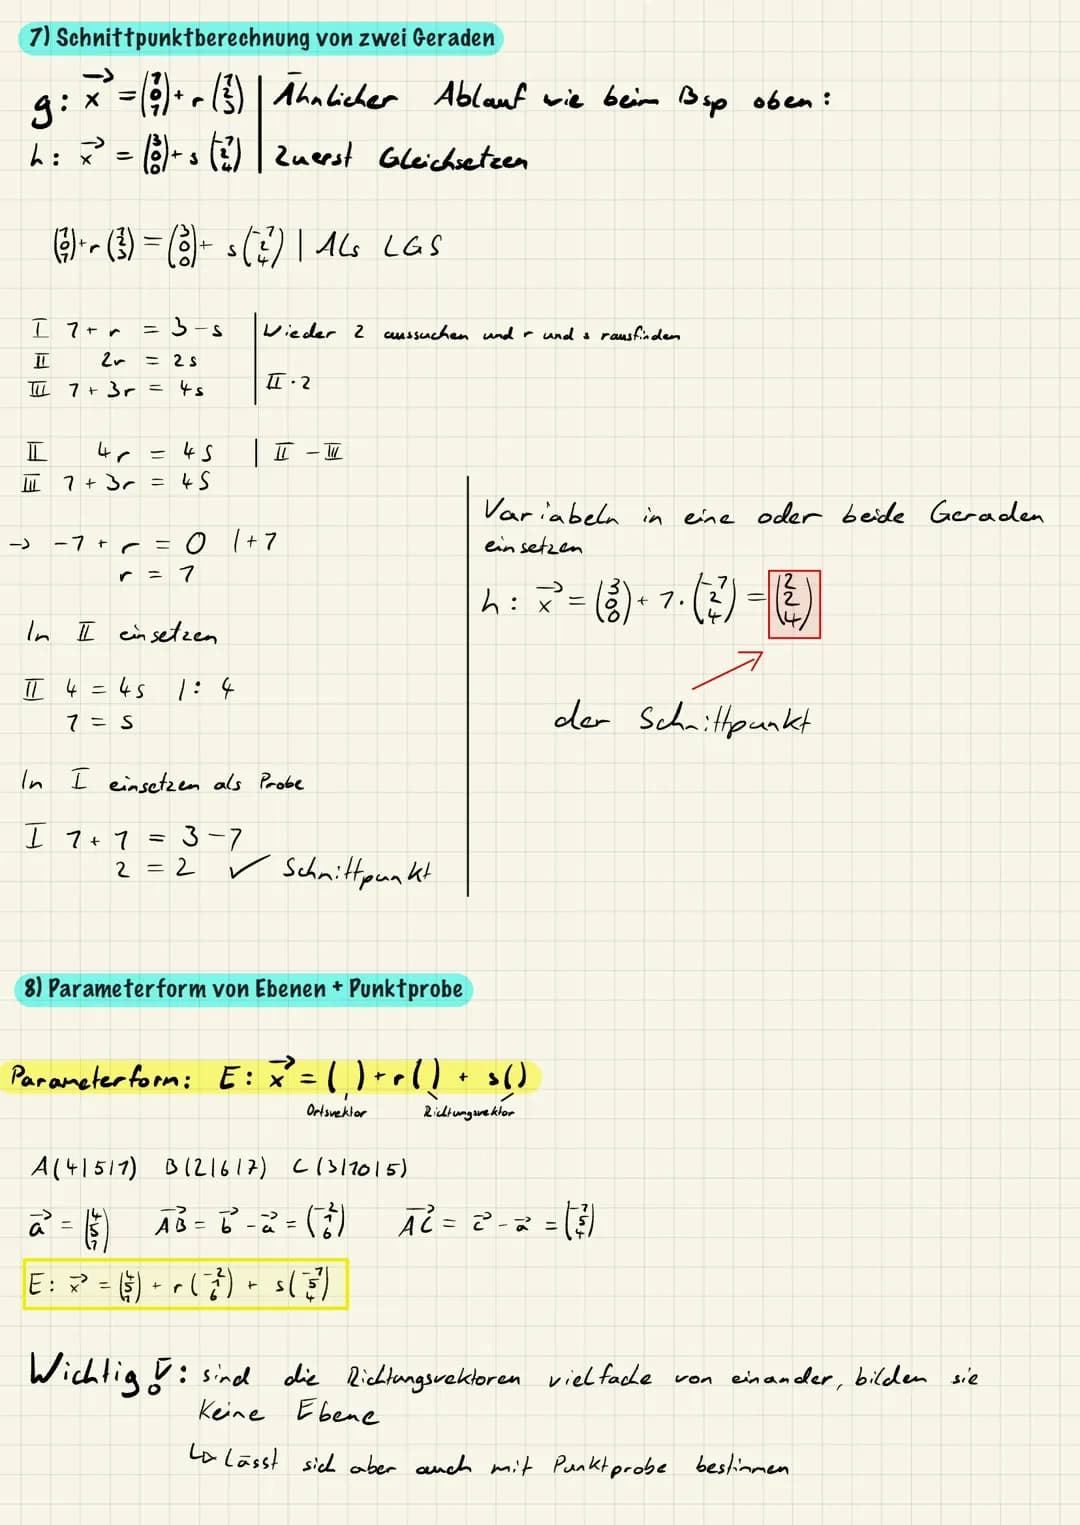 7) Schnittpunktberechnung von zwei Geraden
g: x⃗ = (1 0 1) + r (1 2 3) | Ähnlicher Ablauf wie beim Bsp oben:
h: x⃗ = (3 0 0) + s (-1 2 4) | Zuerst Gleichsetzen
(1 0 1) + r (1 2 3) = (3 0 0) + s (-1 2 4) | Als LGS
I 1 + r = 3 - s | Wieder 2 aussuchen und r und s rausfinden
II 2r = 2s
III 1 + 3r = 4s | II · 2
II 4r = 4s | II - III
III 1 + 3r = 4s
-> -1 + r = 0 | +1
r = 1
In II einsetzen
II 4 = 4s | : 4
1 = s
In I einsetzen als Probe
I 1 + 1 = 3 - 1
2 = 2 ✓ Schnittpunkt
Variabeln in eine oder beide Geraden
einsetzen
h: x⃗ = (3 0 0) + 1 · (-1 2 4) = (2 2 4)
der Schnittpunkt
8) Parameterform von Ebenen + Punktprobe
Parameterform: E: x⃗ = ( ) + r ( ) + s ( )
Ortsvektor Richtungsvektor
A(4|5|1) B(2|6|7) C(3|10|5)
a⃗ = (4 5 1) AB⃗ = b⃗ - a⃗ = (-2 1 6) AC⃗ = c⃗ - a⃗ = (-1 5 4)
E: x⃗ = (4 5 1) + r (-2 1 6) + s (-1 5 4)
Wichtig!: sind die Richtungsvektoren vielfache von einander, bilden sie
Keine Ebene
↳ Lässt sich aber auch mit Punktprobe bestimmen